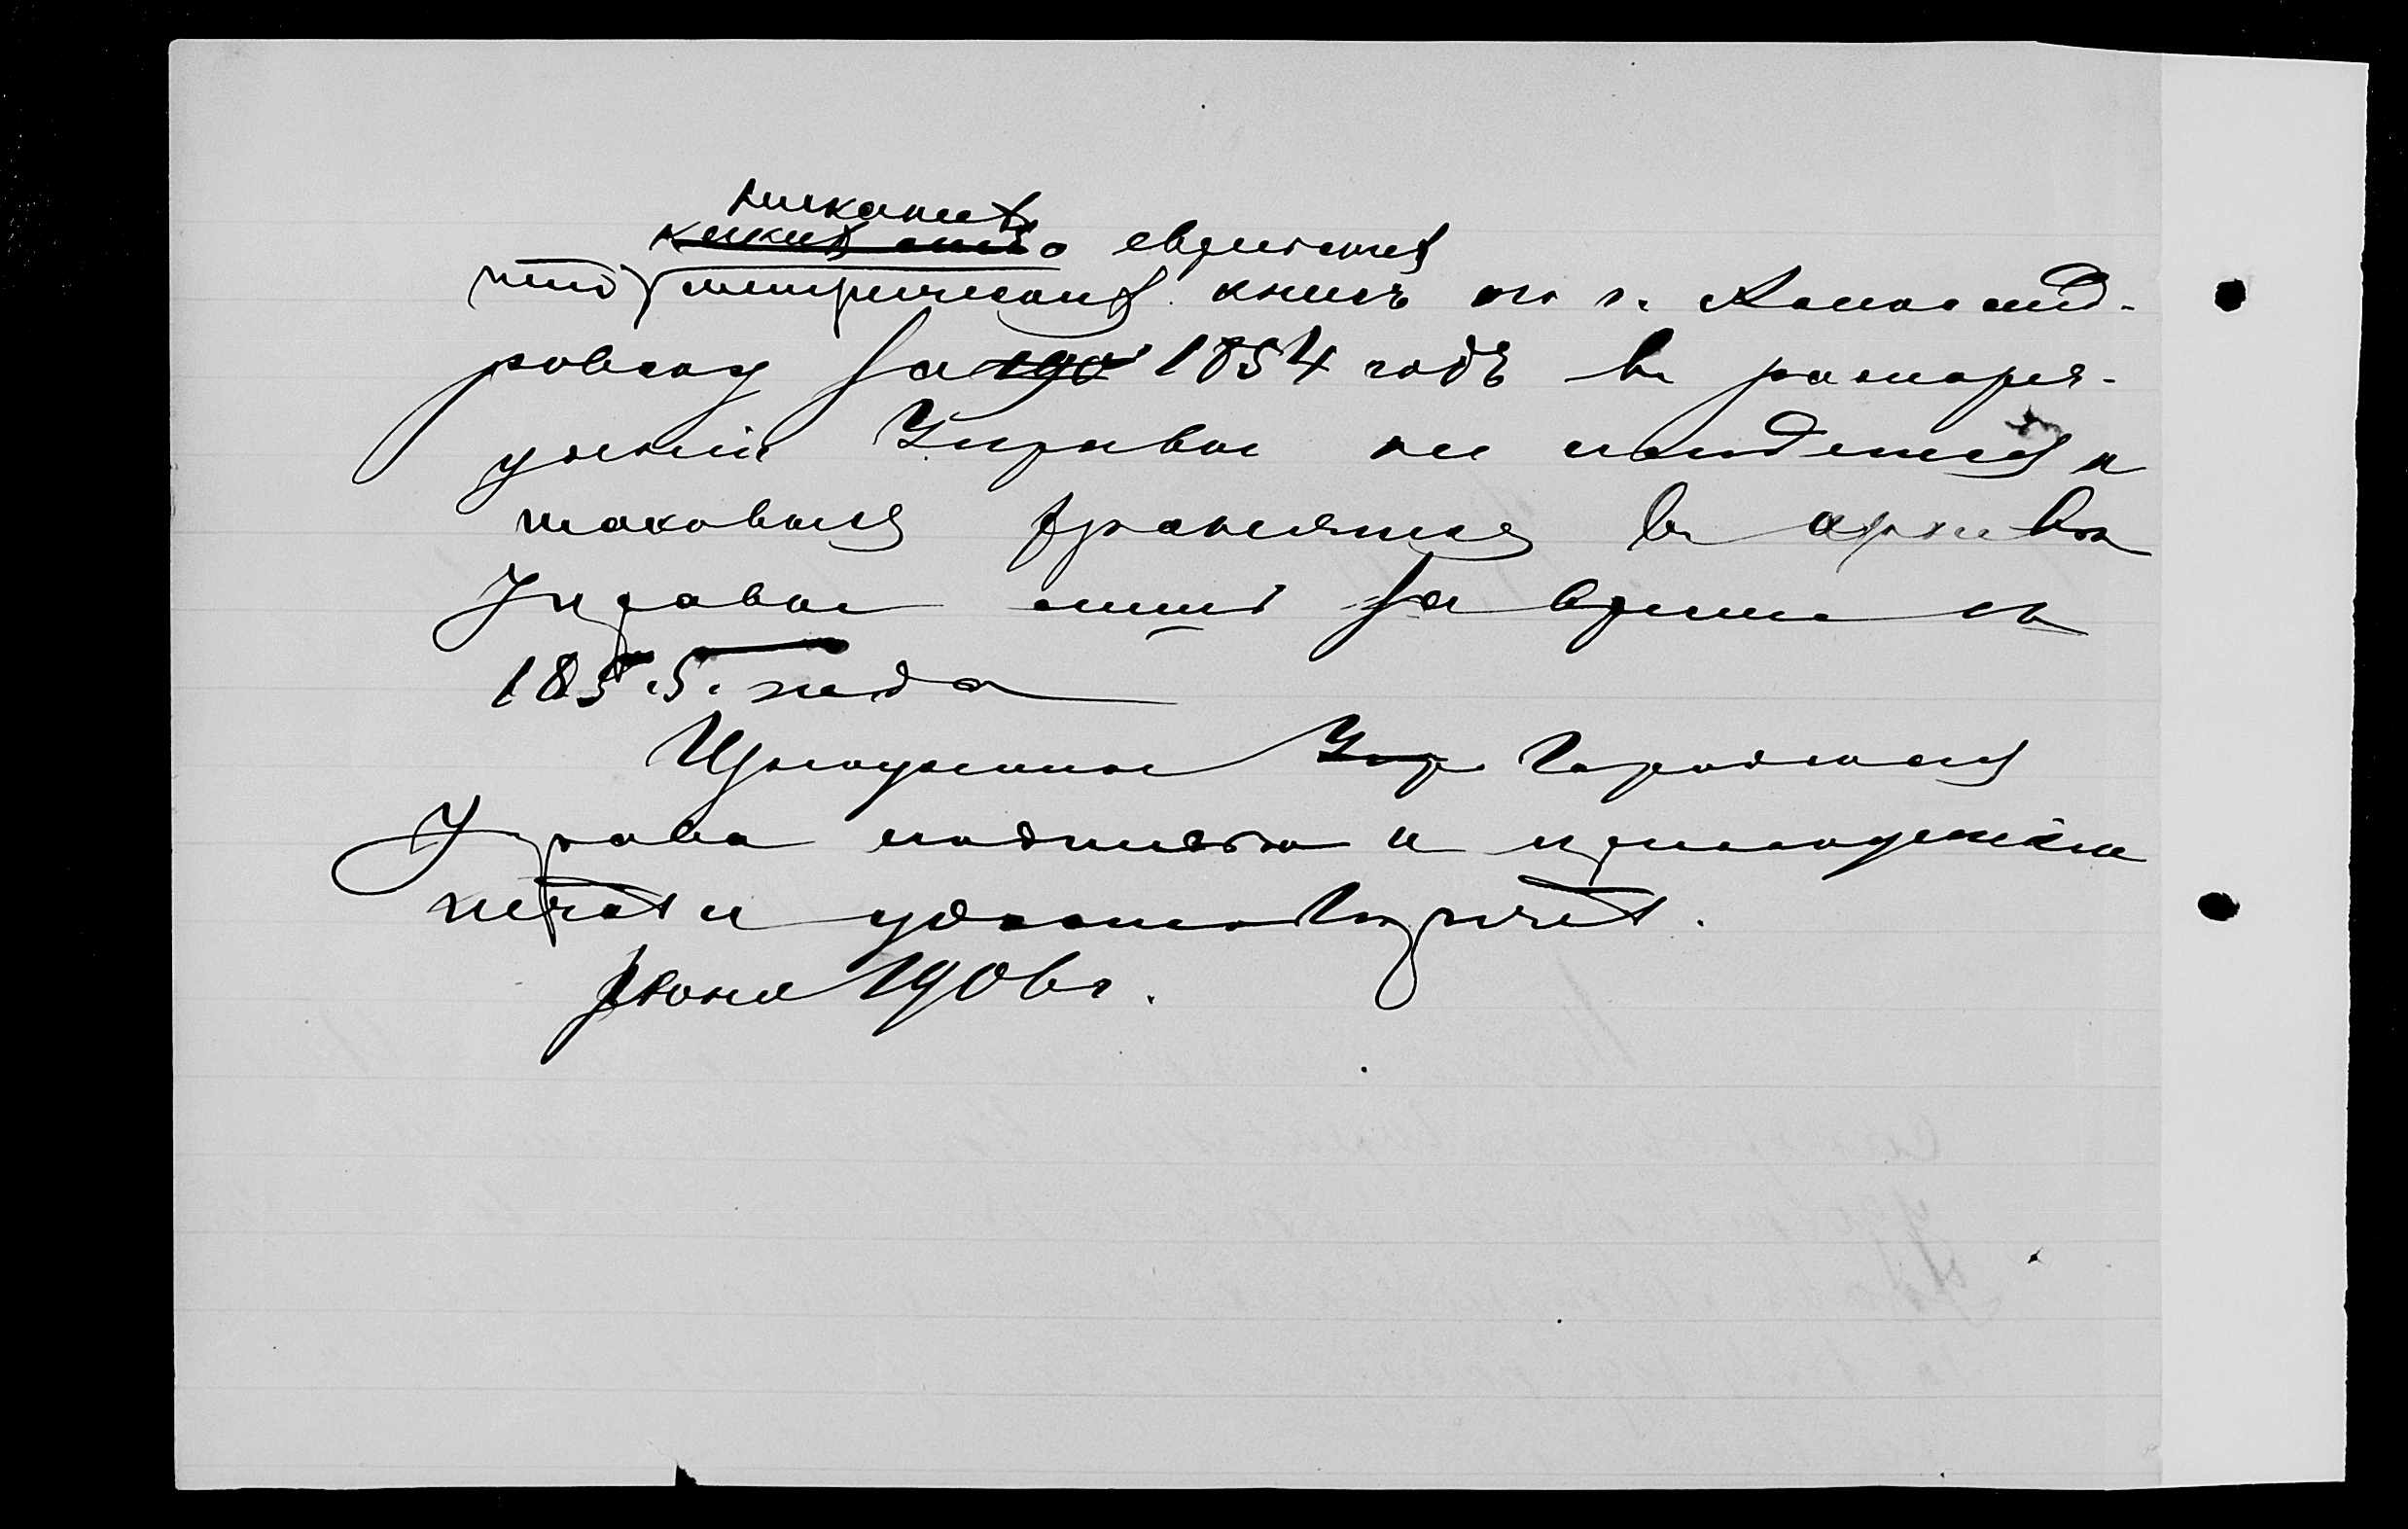 никакихъ
какихъ либо еврейскихъ
что метрическихъ книгъ по г. Александ-
ровску за 190 1854 годъ въ распоря-
женіи Управы не имѣется и
таковыя хранятся въ архивѣ
Управы лишь за время съ
1855 года
Изложенное Упр Городская
Управа подписью и приложеніемъ
печати удостовѣряетъ.
Іюня 1906 г.